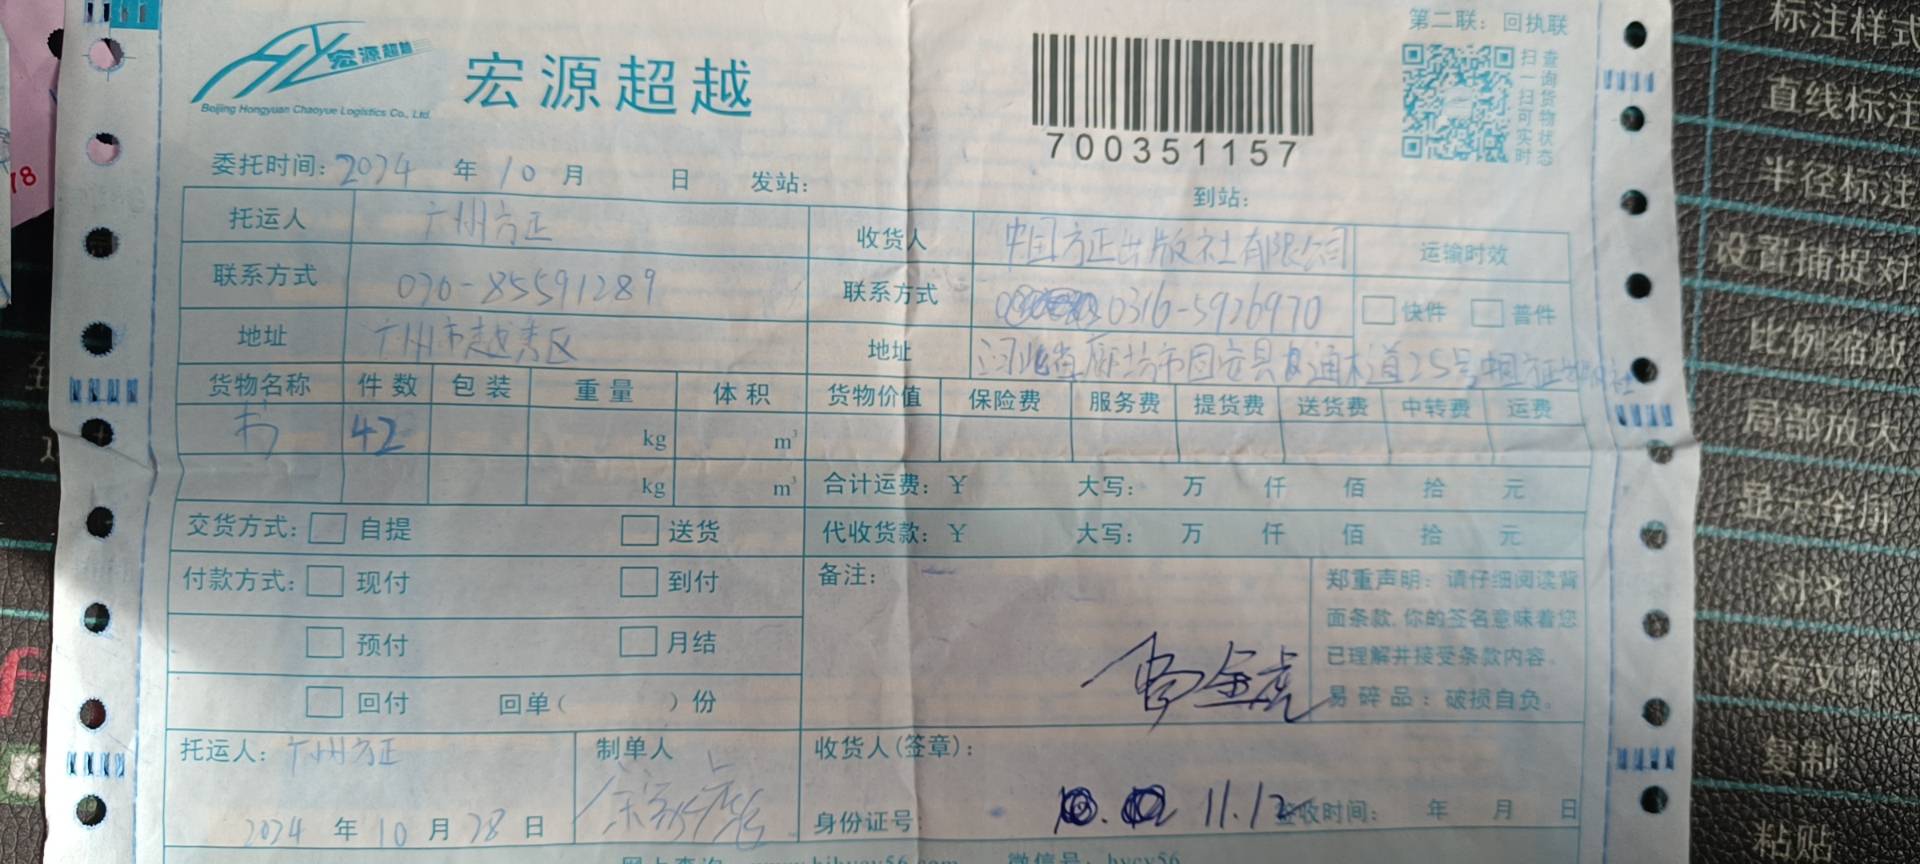 第二联：回执联
宏源超越
Beijing Hongyuan Chaoyue Logistics Co., Ltd.
宏源超越
700351157
扫一扫可实时
查询货物状态
委托时间：2024 年 10 月 日 发站：
到站：
托运人 广州方正 收货人 中国方正出版社有限公司 运输时效
联系方式 020-85591289 联系方式 0316-5926970 快件 普件
地址 广州市越秀区 地址 河北省廊坊市固安县 通 道25号中国方正出版社
货物名称 件数 包装 重量 体积 货物价值 保险费 服务费 提货费 送货费 中转费 运费
书 42 kg m³
kg m³ 合计运费：¥ 大写： 万 仟 佰 拾 元
交货方式： 自提 送货 代收货款：¥ 大写： 万 仟 佰 拾 元
付款方式： 现付 到付 备注：
预付 月结
回付 回单（ ）份
郑重声明：请仔细阅读背
面条款，你的签名意味着您
已理解并接受条款内容。
易碎品：破损自负。
托运人：广州方正 制单人 收货人（签章）：
2024 年 10 月 28 日 身份证号 11.12 签收时间： 年 月 日
标注样式
直线标注
半径标注
设置捕捉对
比例缩放
局部放大
显示全屏
对义
保存文
复制
粘贴